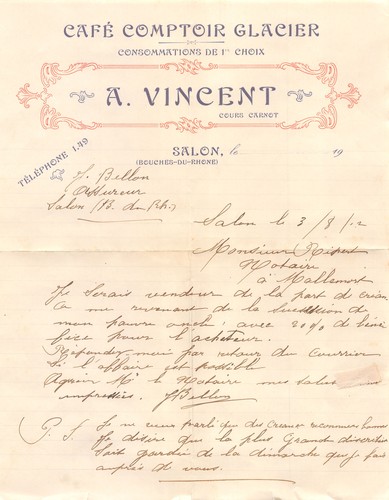 CAFÉ COMPTOIR GLACIER
CONSOMMATIONS DE 1ER CHOIX
A. VINCENT
COURS CARNOT
TÉLÉPHONE 1.49
SALON, le 19
(BOUCHES-DU-RHONE)
J. Bellon
Assureur
Salon (B. du Rh.)
Salon le 3/8/12
Monsieur Ripert
Notaire
à Mallemort
Je serais vendeur de la part de
à me revenant de la succession de
mon pauvre oncle : avec 20% de béné
fice pour l'acheteur.
Répondez moi par retour du courrier
Si l'affaire est possible
Agréer Mr le Notaire mes salutations
empressées. JBellon
P. S. Je ne veux parler que des reconnues bonnes
Je désire que la plus Grande discrétion
Soit gardée de la démarche que je fais
auprès de vous.